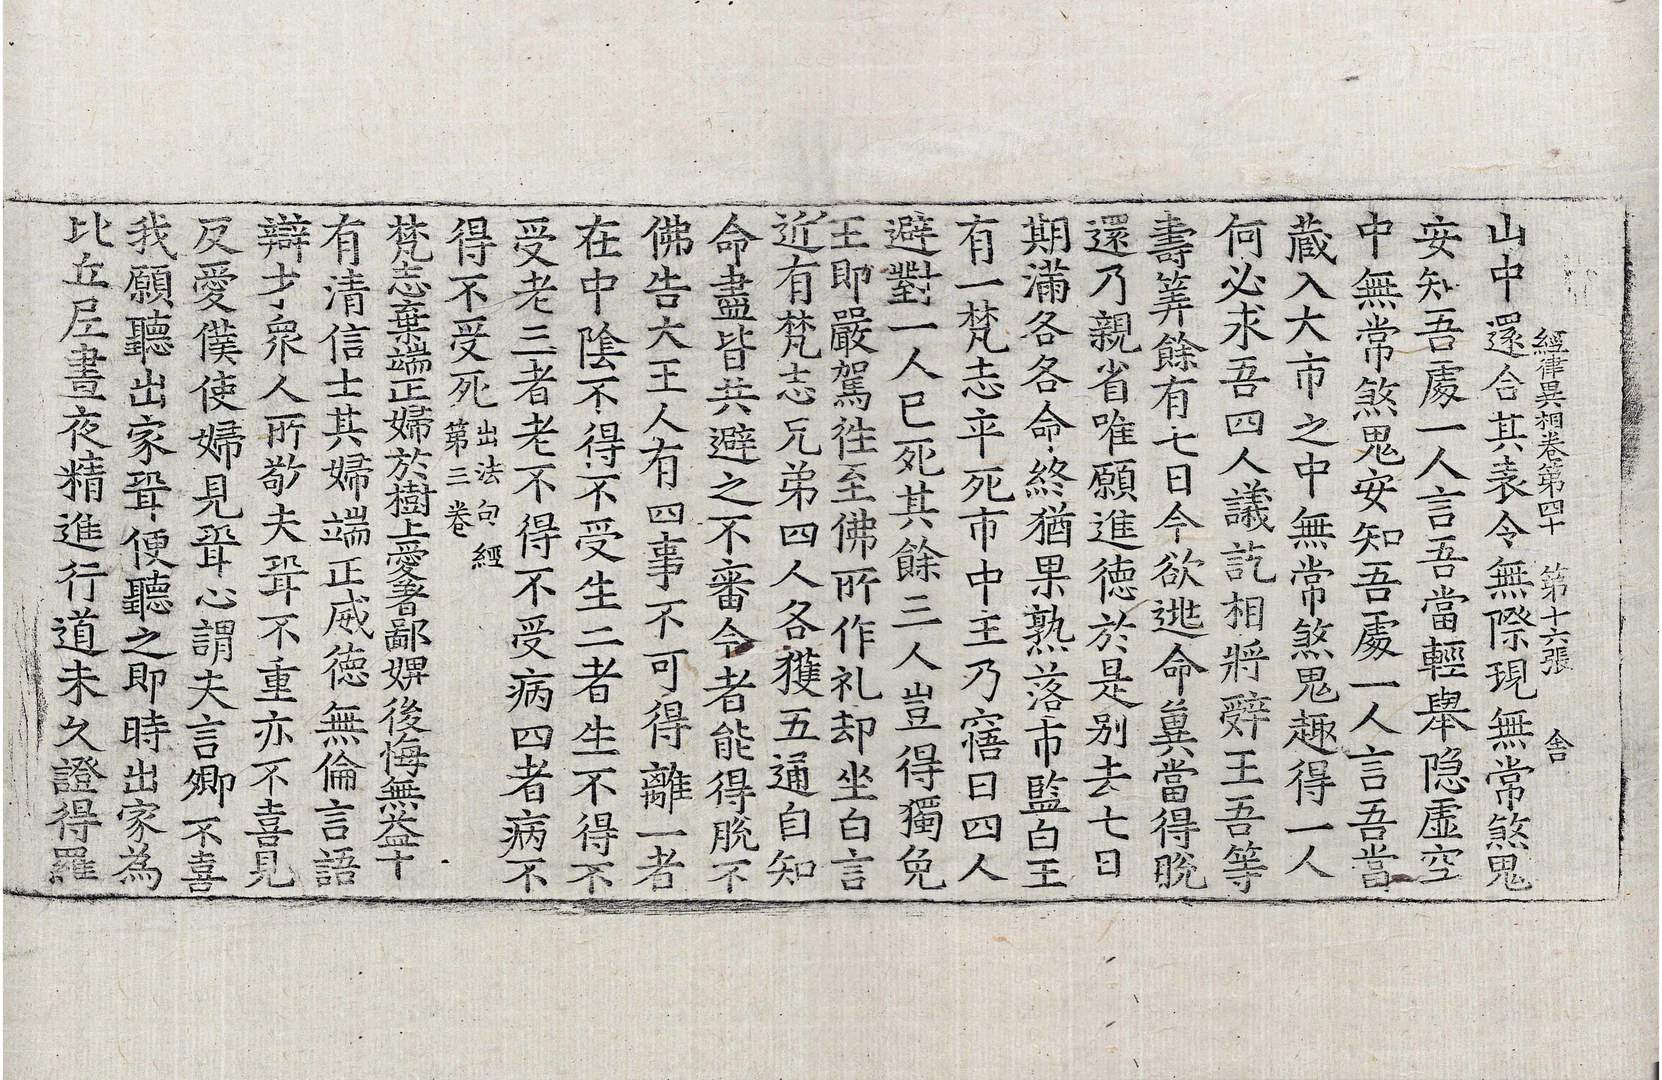 經律異相卷第四十 第十六張 舍
山中還合其表令無際現無常煞鬼
安知吾處一人言吾當輕舉隱虛空
中無常煞鬼安知吾處一人言吾當
藏入大市之中無常煞鬼趣得一人
何必求吾四人議訖相將辭王吾等
壽筭餘有七日今欲逃命冀當得脫
還乃親省唯願進德於是別去七日
期滿各各命終猶果熟落市監白王
有一梵志卒死市中王乃寤曰四人
避對一人已死其餘三人豈得獨免
王即嚴駕往至佛所作礼却坐白言
近有梵志兄弟四人各獲五通自知
命盡皆共避之不審今者能得脫不
佛告大王人有四事不可得離一者
在中陰不得不受生二者生不得不
受老三者老不得不受病四者病不
得不受死 出法句經第三卷
梵志棄端正婦於樹上愛著鄙婢後悔無益十
有清信士其婦端正威德無倫言語
辯才衆人所敬夫聟不重亦不喜見
反愛僕使婦見聟心謂夫言卿不喜
我願聽出家聟便聽之即時出家為
比丘尼晝夜精進行道未久證得羅